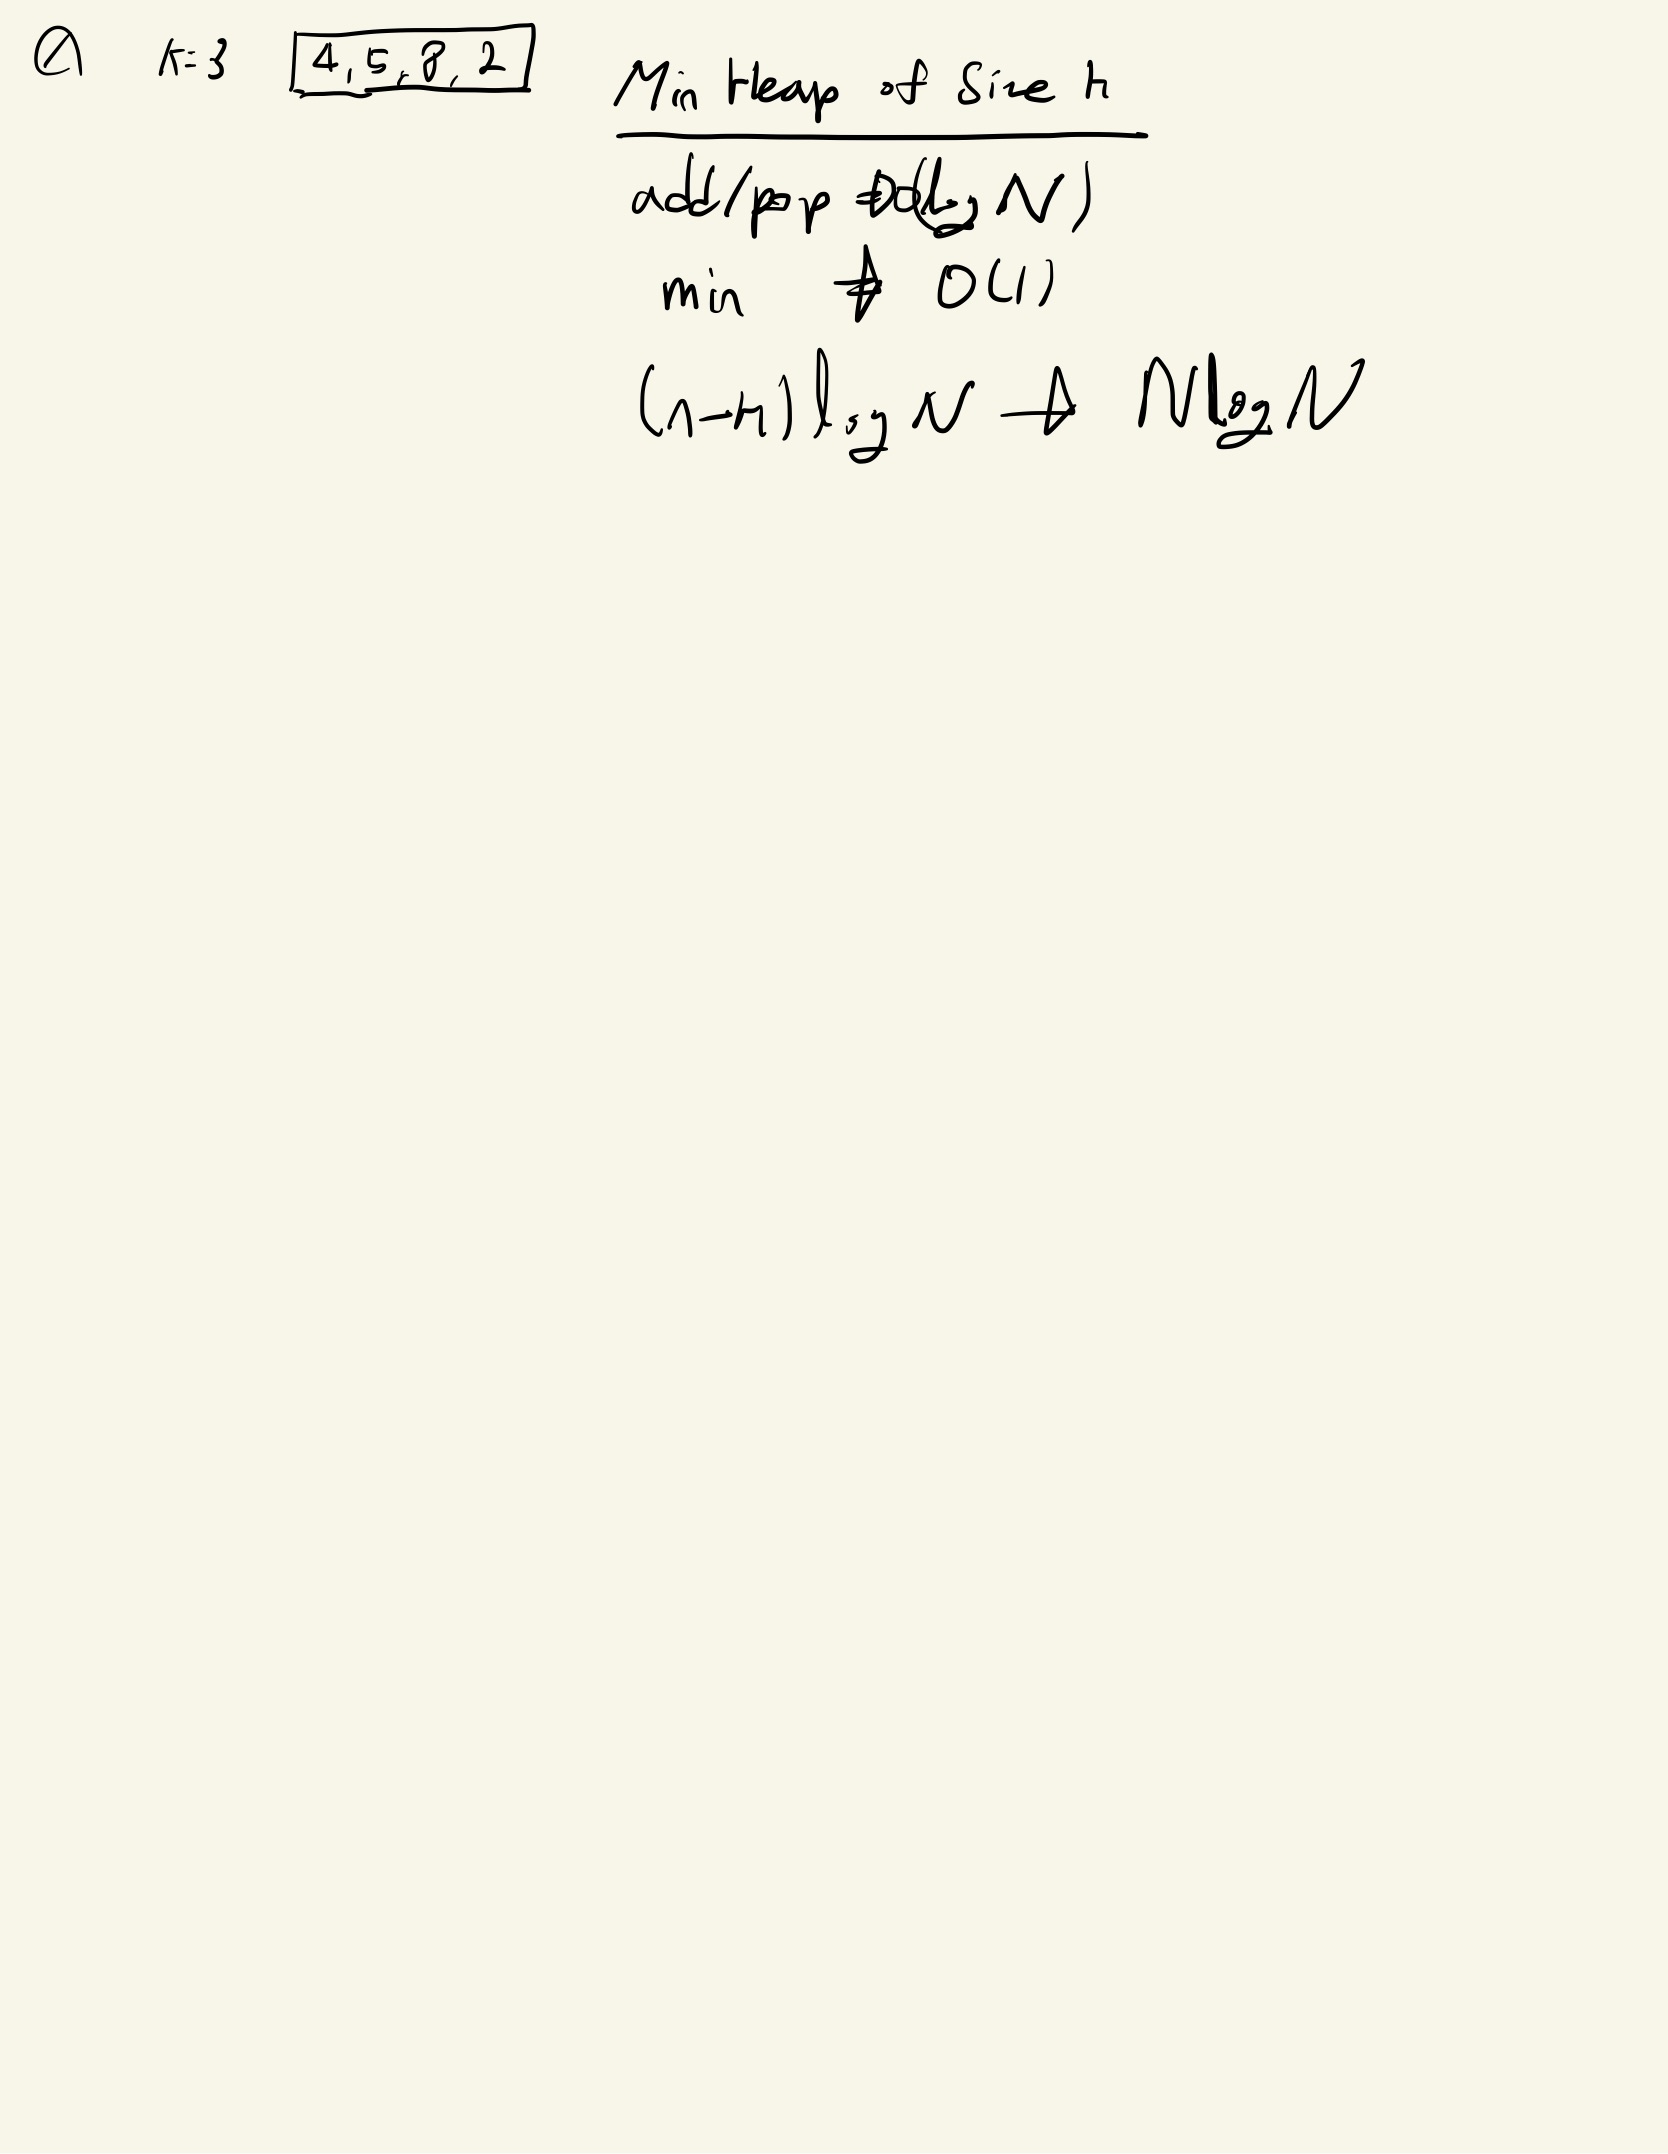 Q K=3 4, 5, 8, 2
Min Heap of Size k
add/pop → O(log N)
min → O(1)
(n-k) log N → N log N